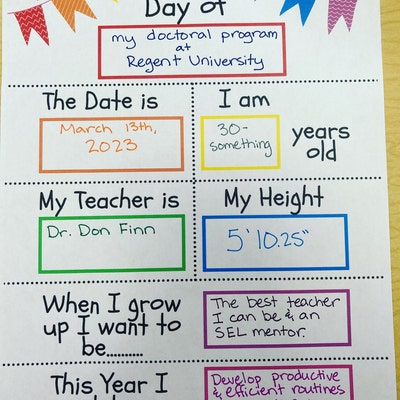 Day of
my doctoral program
at
Regent University
The Date is
March 13th,
2023
I am
30-
something
years
old
My Teacher is
Dr. Don Finn
My Height
5'10.25"
When I grow
up I want to
be.........
The best teacher
I can be & an
SEL mentor.
This Year I
Develop productive
& efficient routines